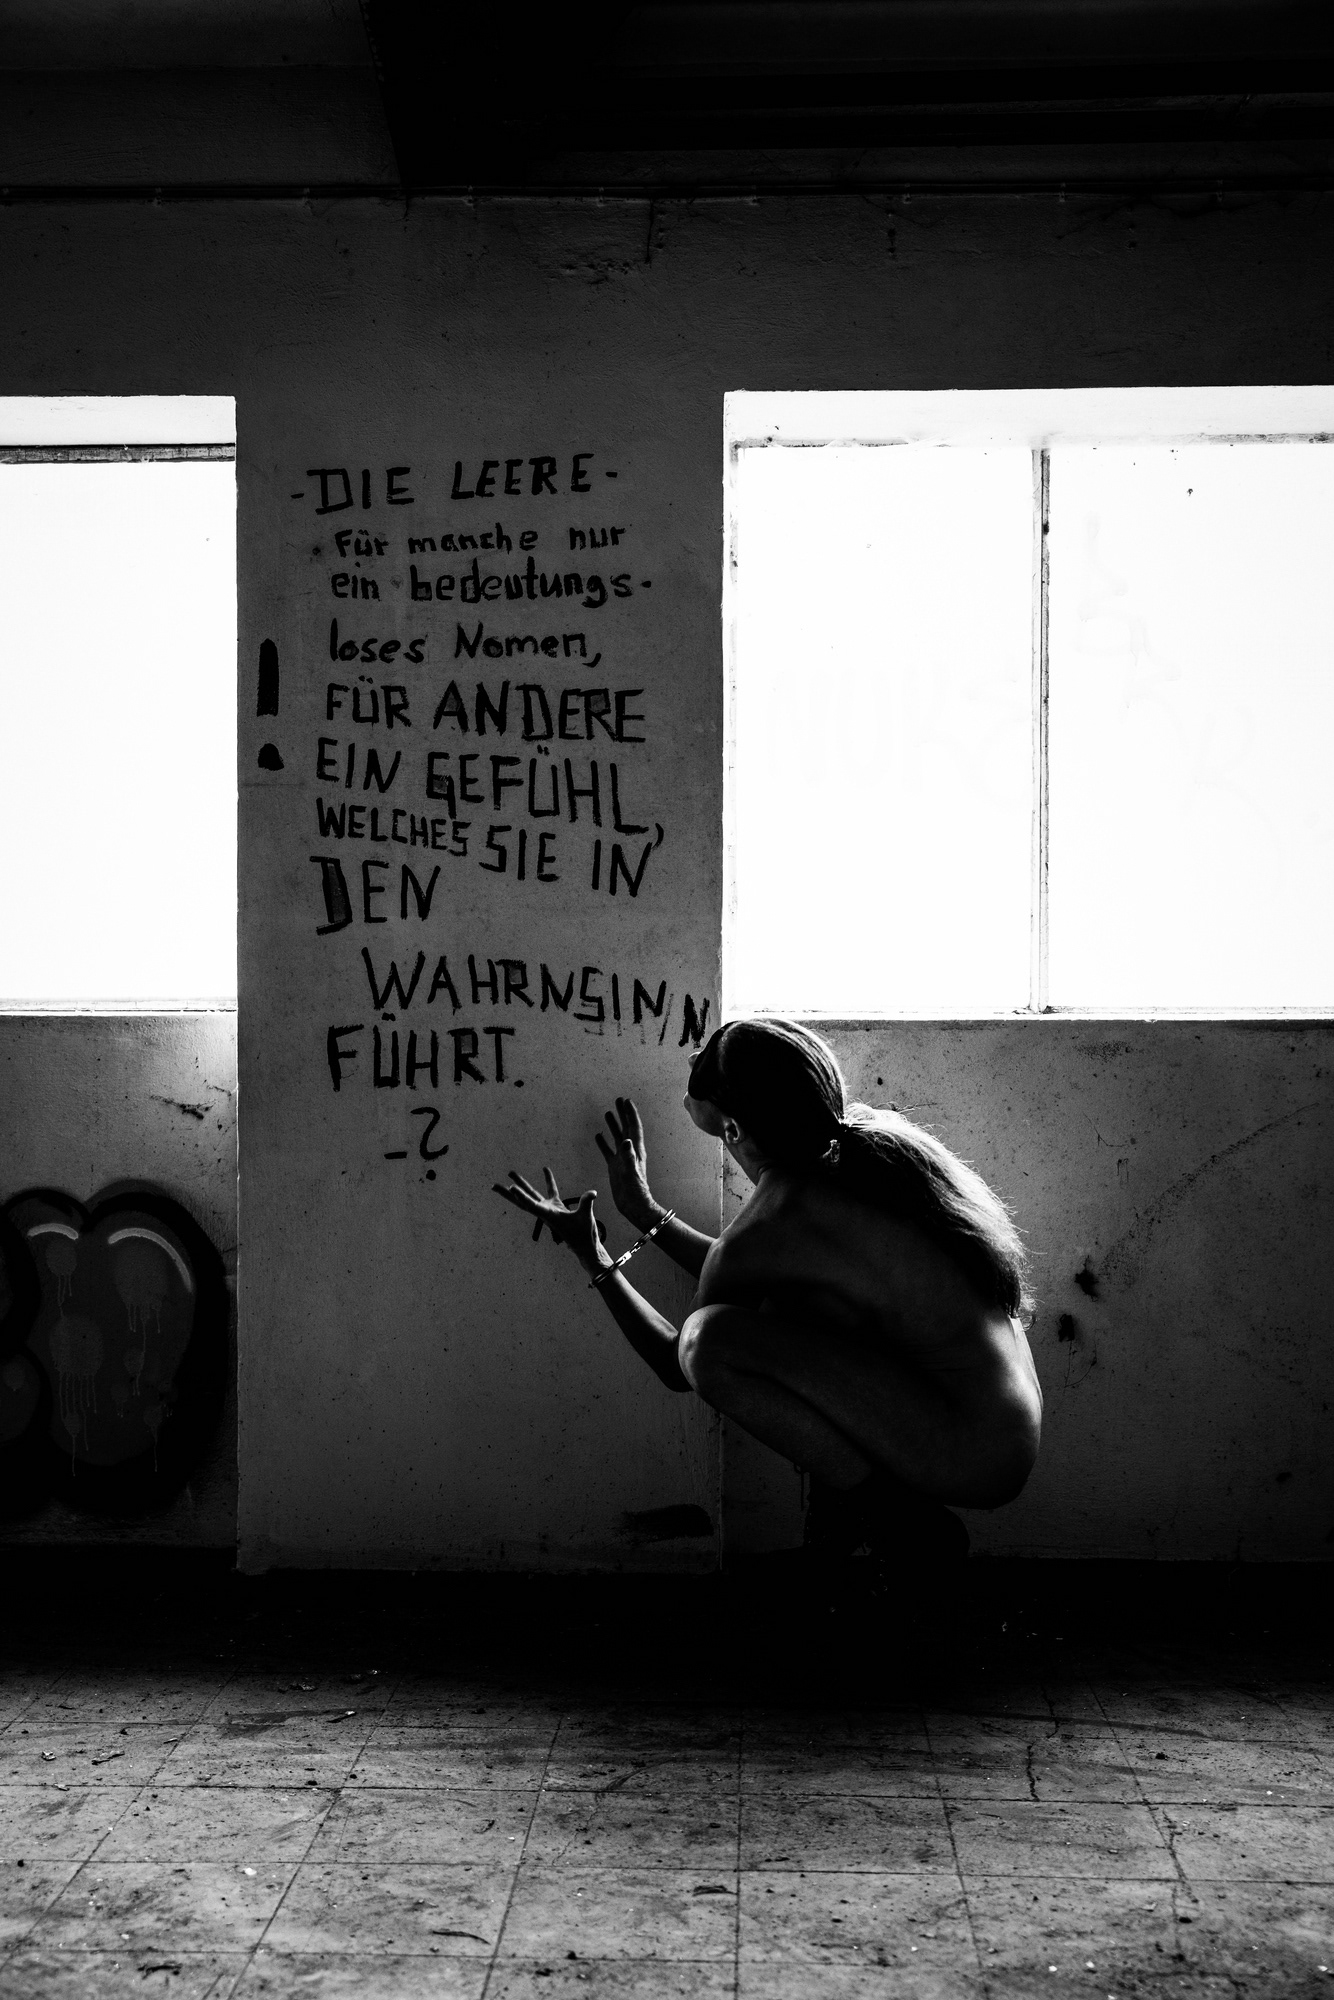 -DIE LEERE-
Für manche nur
ein bedeutungs-
loses Nomen,
FÜR ANDERE
EIN GEFÜHL,
WELCHES SIE IN
DEN
WAHRNSINN
FÜHRT.
-?
!